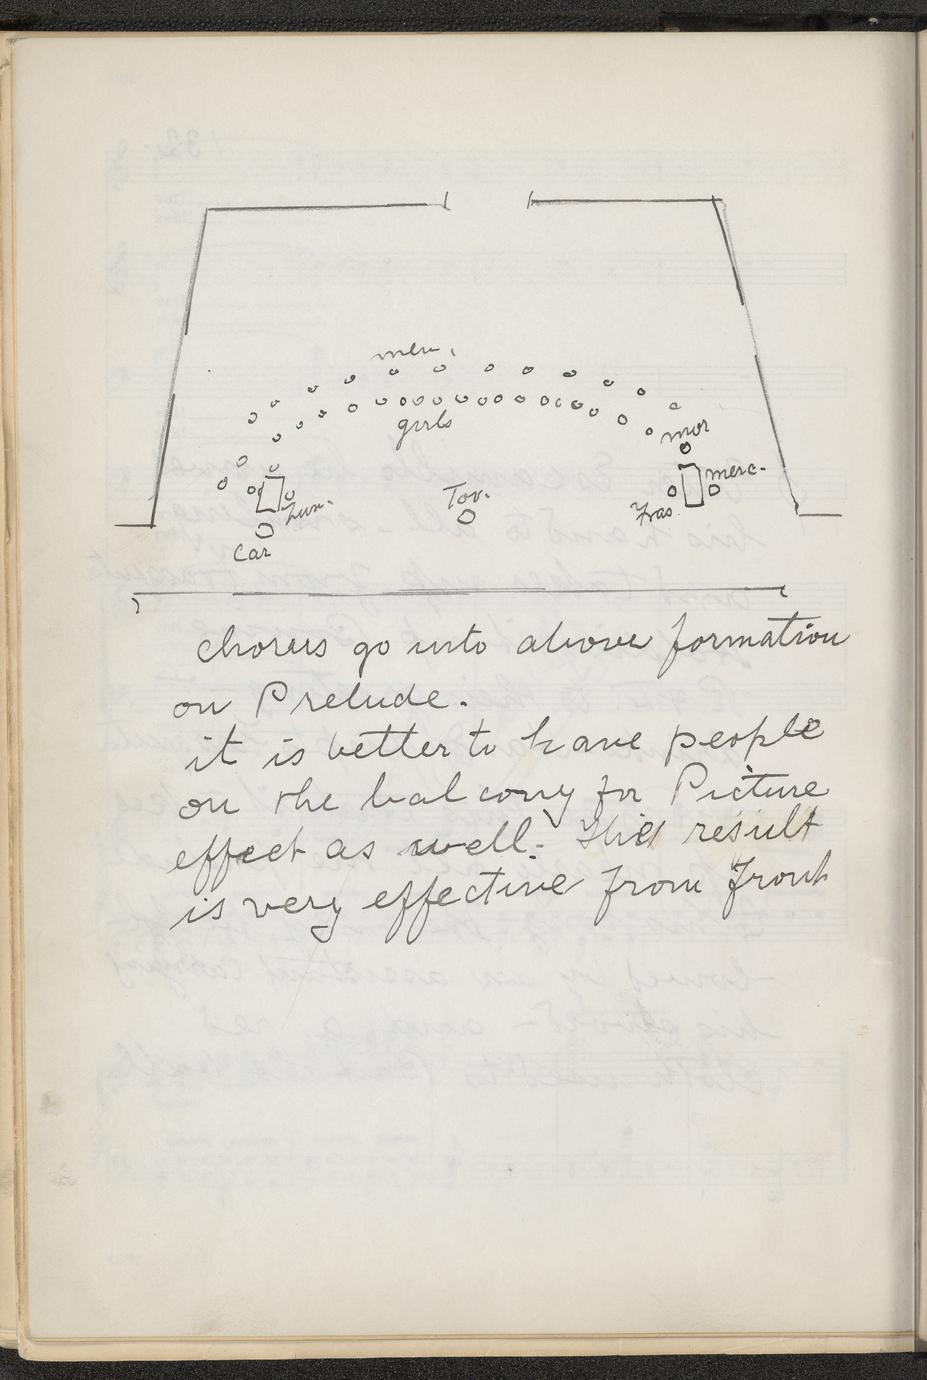 men.
girls
mor
merc.
Fras.
Tor.
Zun.
Car
chorus go into above formation
on Prelude.
it is better to have people
on the balcony for Picture
effect as well. This result
is very effective from Front